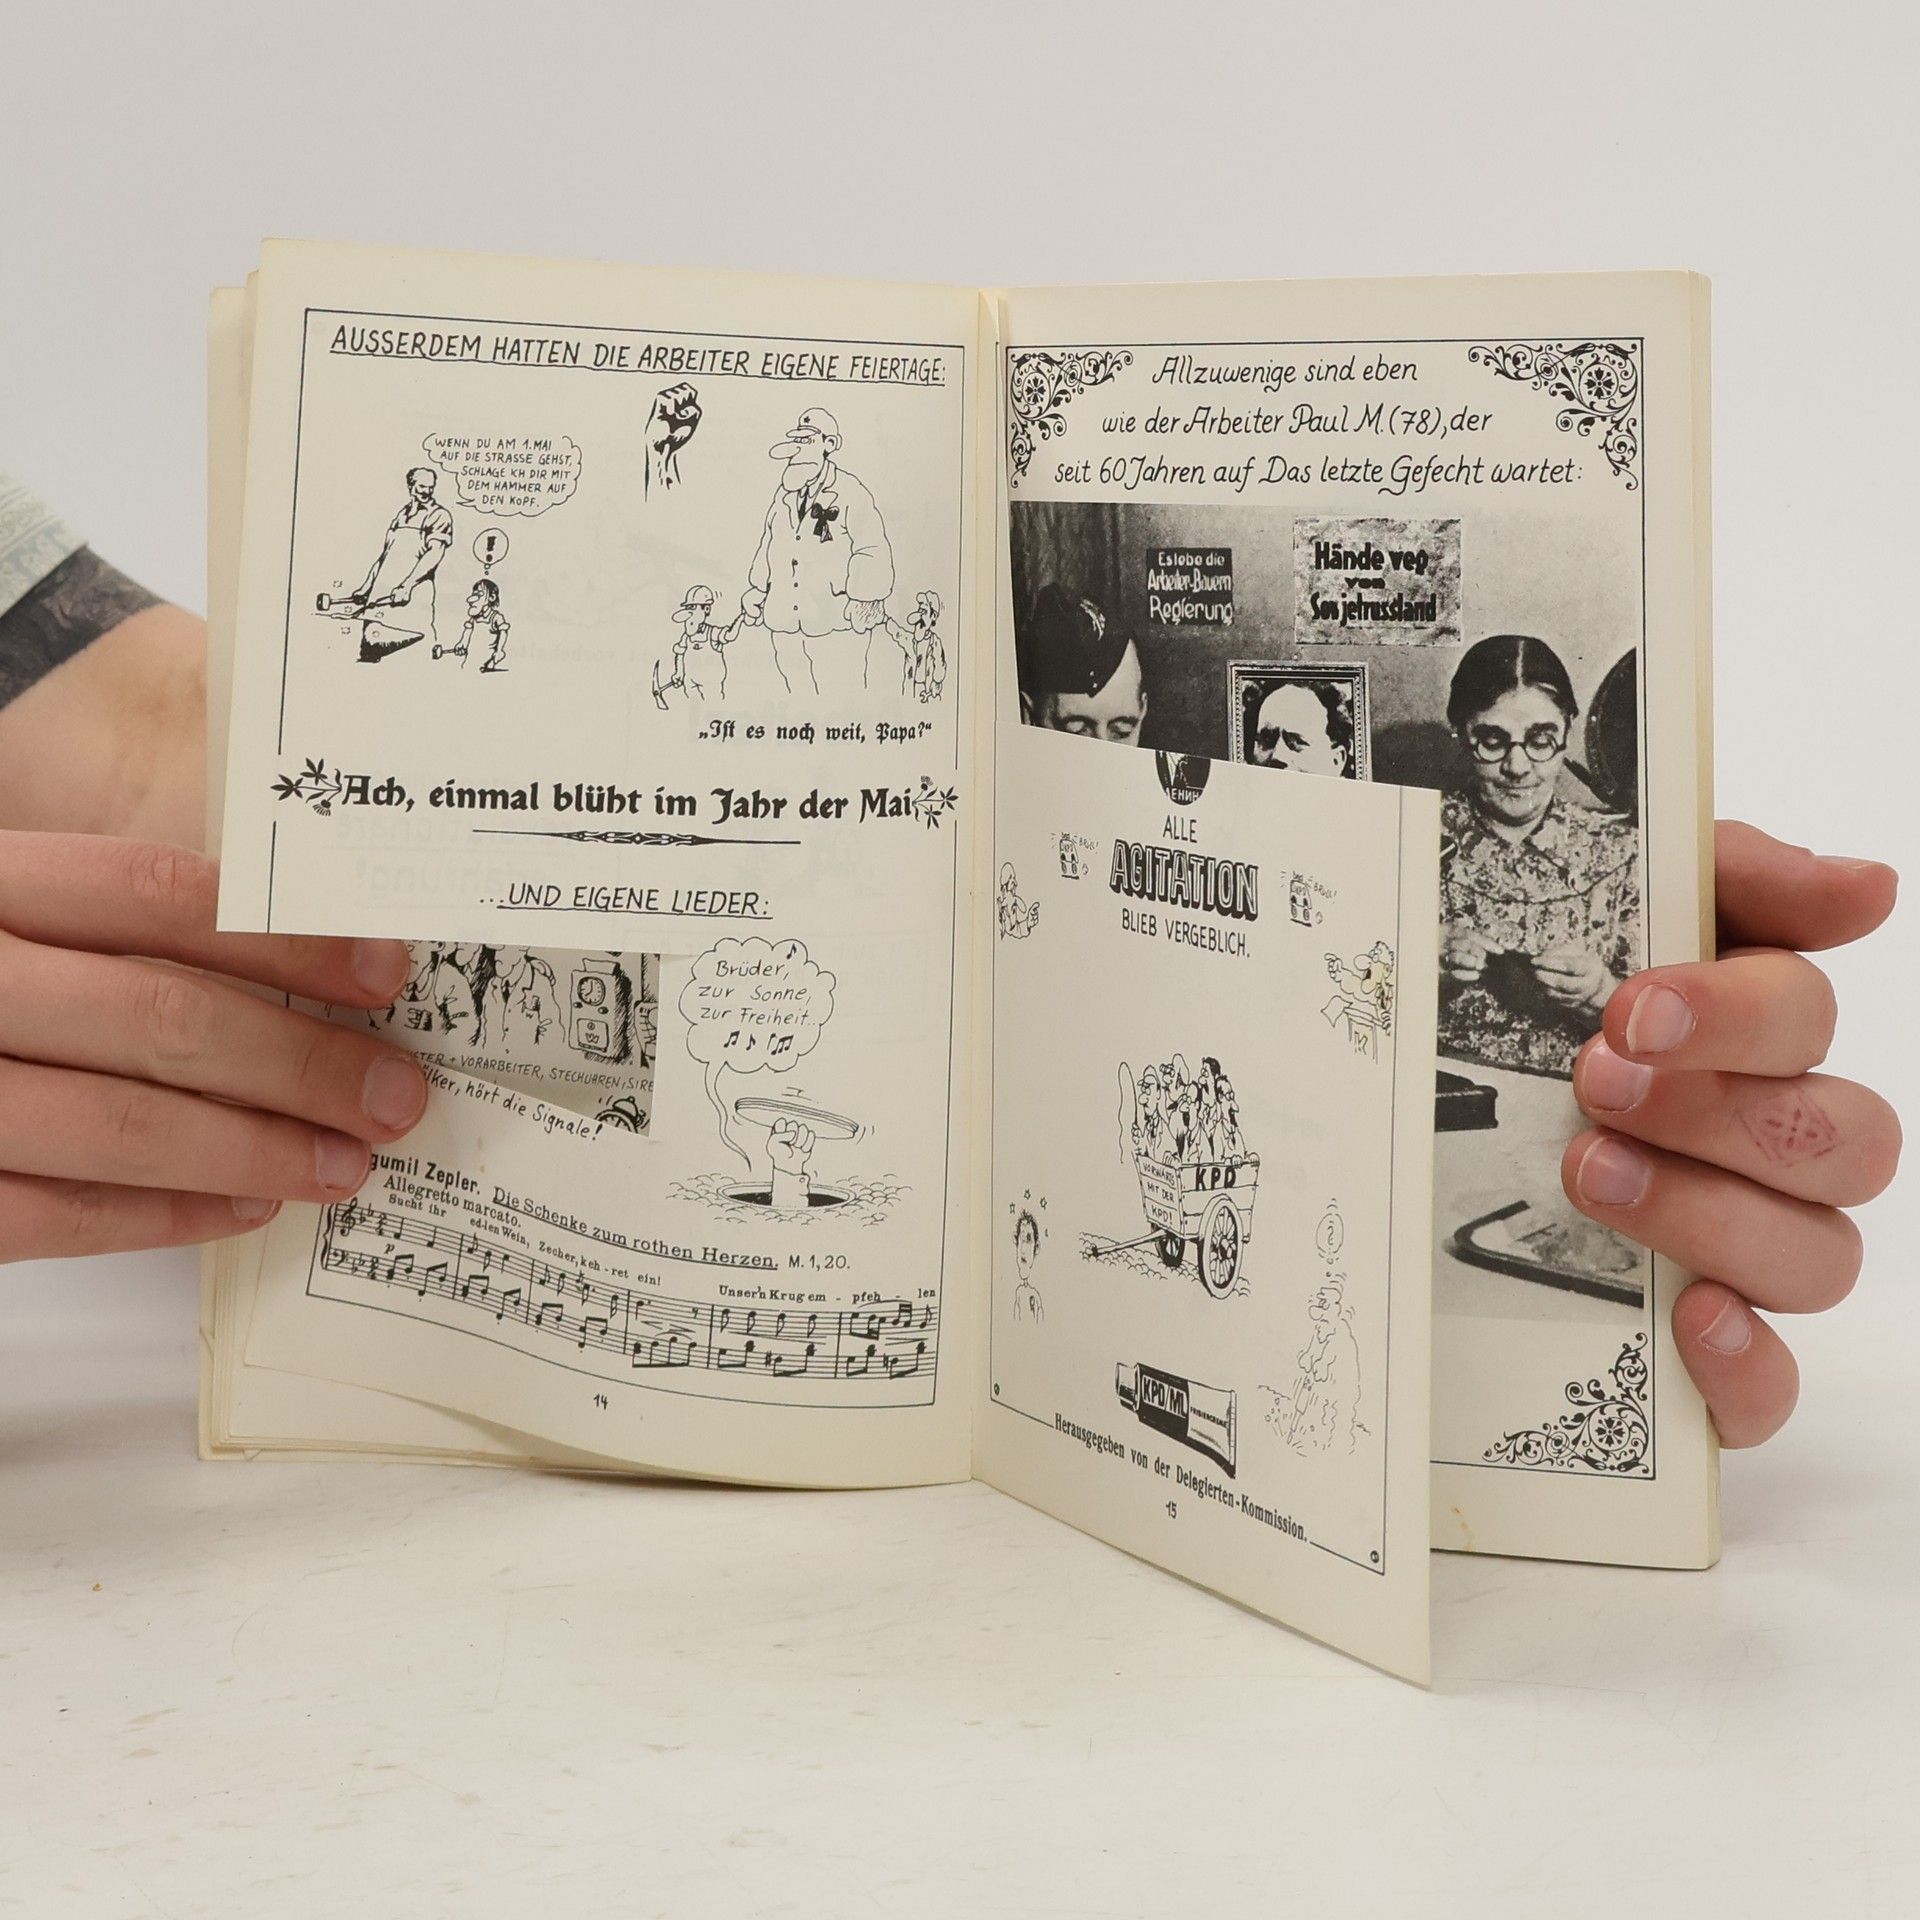 AUSSERDEM HATTEN DIE ARBEITER EIGENE FEIERTAGE:
WENN DU AM 1. MAI
AUF DIE STRASSE GEHST,
SCHLAGE ICH DIR MIT
DEM HAMMER AUF
DEN KOPF.
!
„Ist es noch weit, Papa?“
Ach, einmal blüht im Jahr der Mai
...UND EIGENE LIEDER:
Brüder,
zur Sonne,
zur Freiheit...
+ VORARBEITER, STECHUHREN, SIRE
hört die Signale!
gumil Zepler. Die Schenke zum rothen Herzen. M. 1, 20.
Allegretto marcato.
Sucht ihr ed-len Wein, Zecher, keh - ret ein! Unser'n Krug em - pfeh - len
p
14
Allzuwenige sind eben
wie der Arbeiter Paul M. (78), der
seit 60 Jahren auf Das letzte Gefecht wartet:
Es lebe die
Arbeiter-Bauern
Regierung
Hände weg
von
Sowjetrussland
ЛЕНИН
ALLE
AGITATION
BLIEB VERGEBLICH.
BRÜLL!
BRÜLL!
VORWÄRTS
MIT DER
KPD!
KPD
?
KPD/ML
Herausgegeben von der Delegierten-Kommission.
15